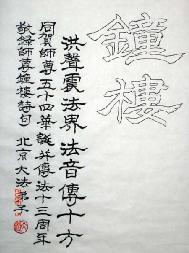 鐘樓
洪聲震法界 法音傳十方
同賀師尊五十四華誕并傳法十三周年
敬錄師尊鐘樓詩句 北京大法弟子